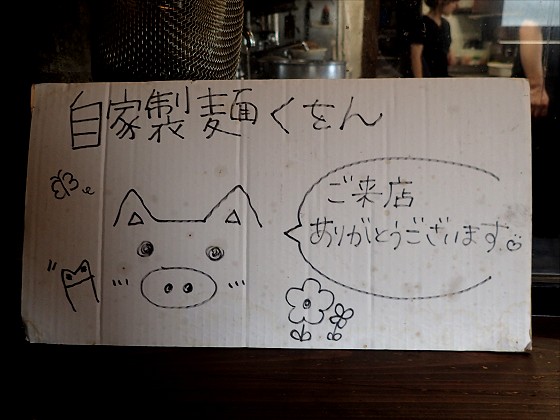 自家製麺くをん
ご来店
ありがとうございます